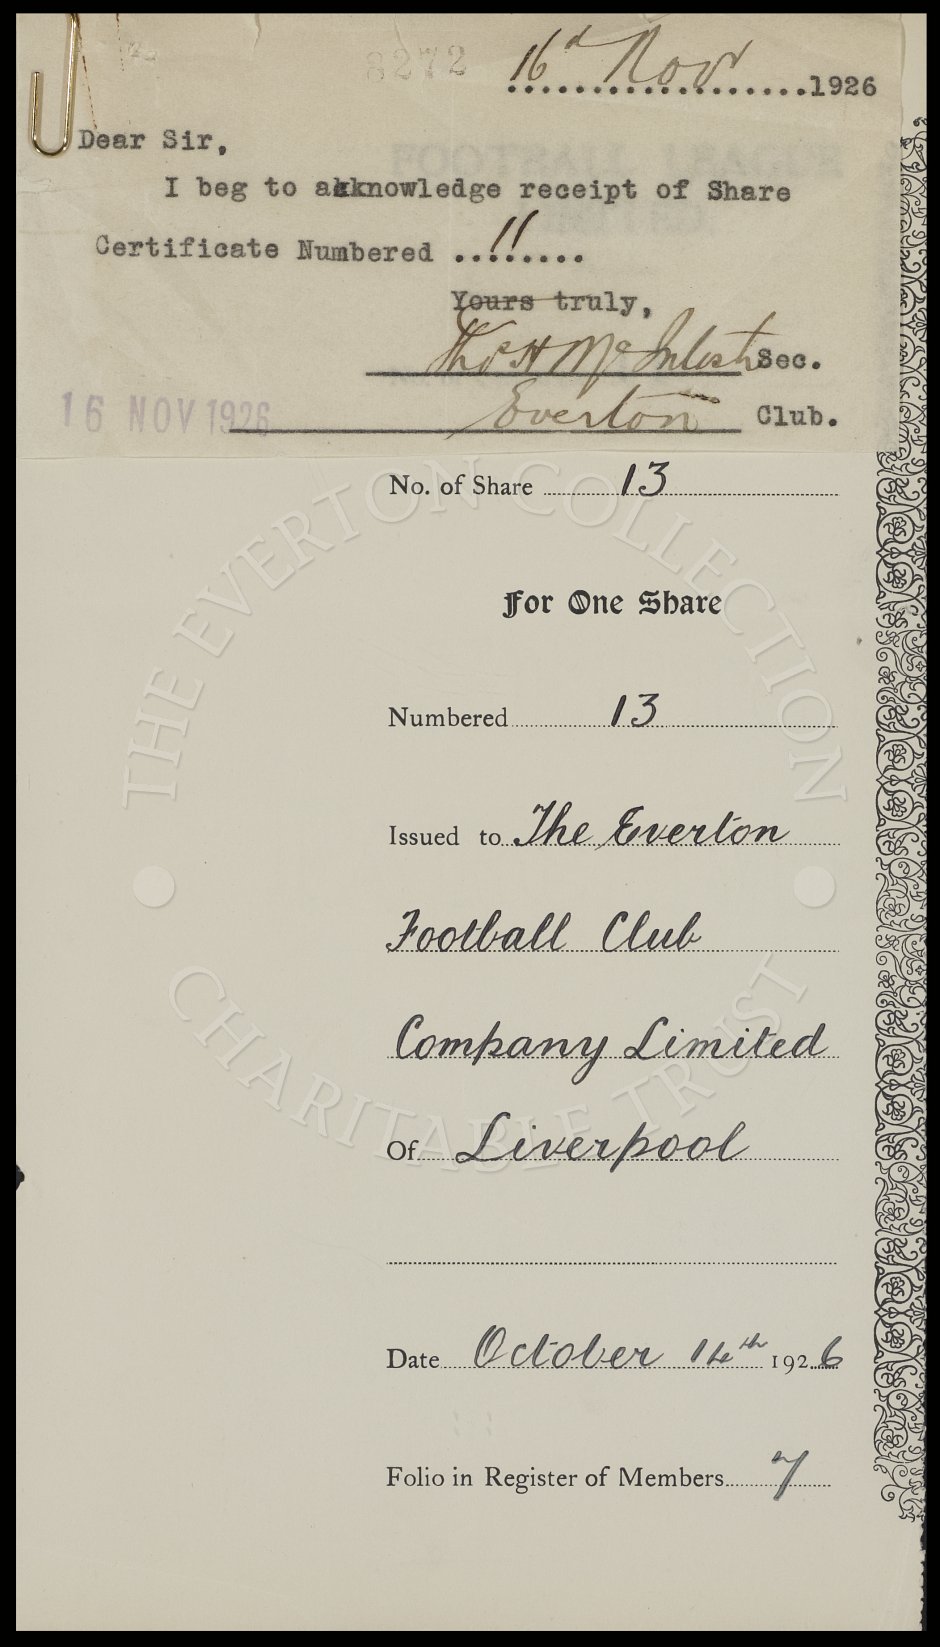 8272
16th Nov 1926
Dear Sir,
I beg to akknowledge receipt of Share
Certificate Numbered 11
Yours truly,
Thos H McIntosh Sec.
16 NOV 1926
Everton Club.
No. of Share 13
For One Share
Numbered 13
Issued to The Everton
Football Club
Company Limited
Of Liverpool
Date October 14th 1926
Folio in Register of Members 7
THE EVERTON COLLECTION
CHARITABLE TRUST